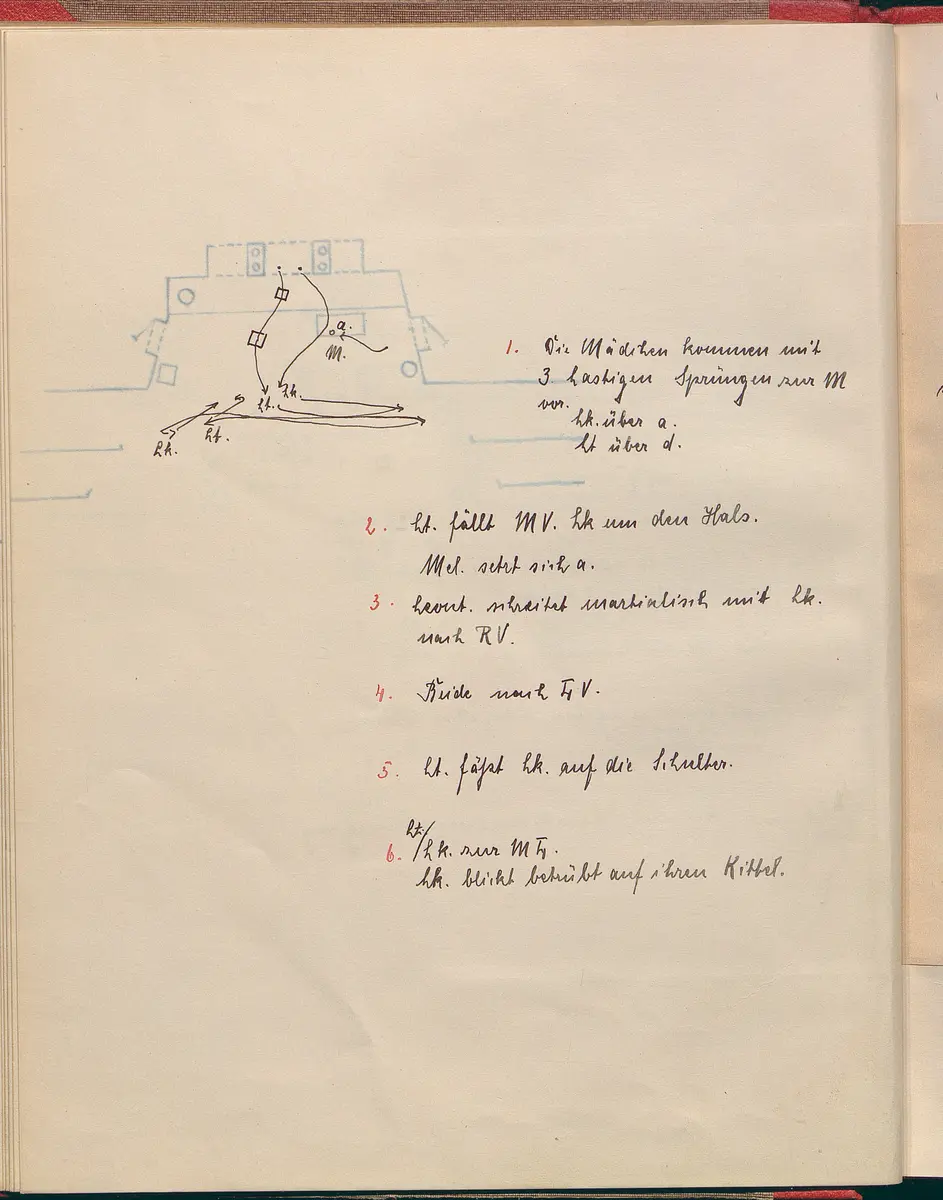 a.
M.
hk.
ht.
hk.
ht.
1. Die Mädchen kommen mit
3 hastigen Sprüngen zur M
vor.
hk. über a.
ht über d.
2. ht. fällt MV. hk um den Hals.
Mel. setzt sich a.
3. schreitet martialisch mit hk.
nach RV.
4. Beide nach V.
5. ht. faßt hk. auf die Schulter.
ht./
6. hk. zur M
hk. blickt betrübt auf ihren Kittel.